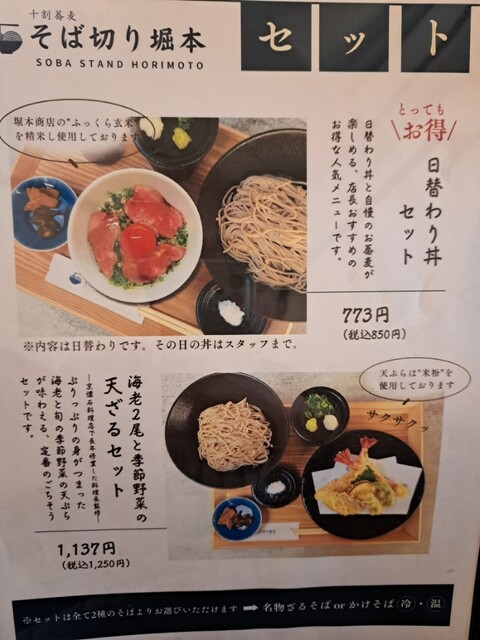 十割蕎麦
そば切り堀本
SOBA STAND HORIMOTO
セット
堀本商店の"ふっくら玄米"
を精米し使用しております
とっても
\お得/
日替わり丼
セット
日替わり丼と自慢のお蕎麦が
楽しめる、店長おすすめの
お得な人気メニューです。
773円
(税込850円)
※内容は日替わりです。その日の丼はスタッフまで。
天ぷらは"米粉"を
使用しております
サクサクッ
海老2尾と季節野菜の
天ざるセット
―京懐石料理店で長年修業した料理長監修―
ぷりっぷりの身がつまった
海老と旬の季節野菜の天ぷら
が味わえる、定番のごちそう
セットです。
1,137円
(税込1,250円)
※セットは全て2種のそばよりお選びいただけます ➡ 名物ざるそば or かけそば 冷・温